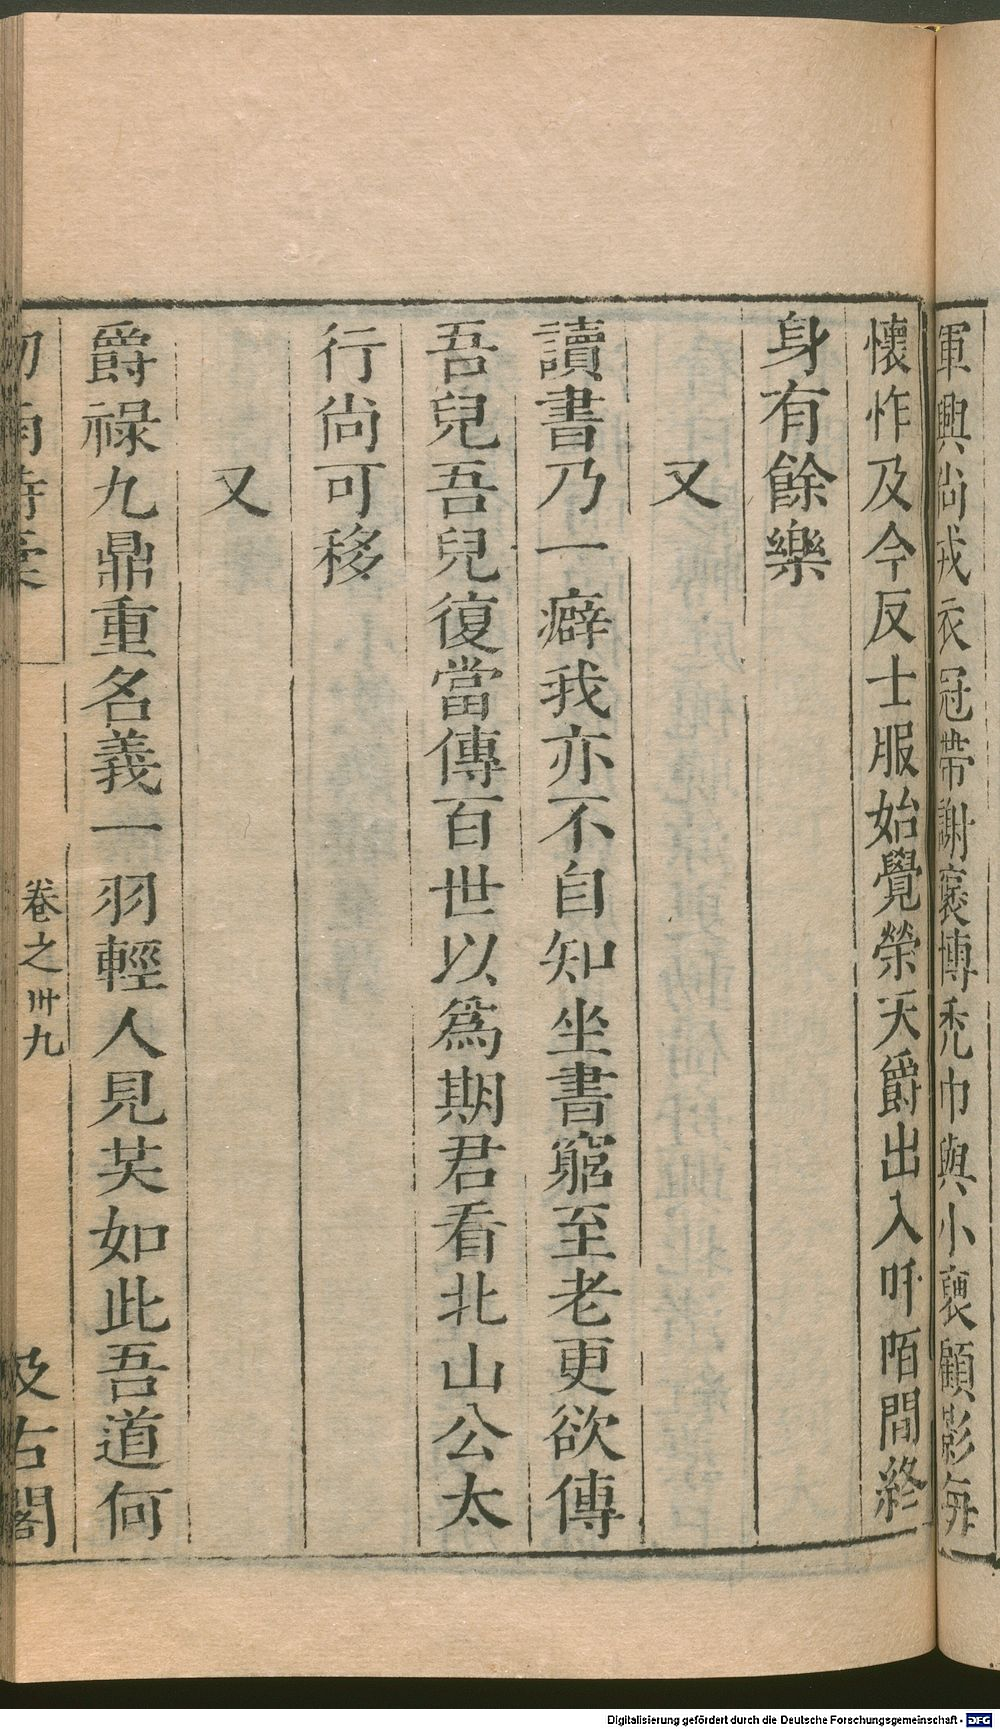 軍興尚戎衣冠帶謝褒博禿巾與小褏顧影每
懷怍及今反士服始覺榮天爵出入阡陌間終
身有餘樂
又
讀書乃一癖我亦不自知坐書窮至老更欲傳
吾兒吾兒復當傳百世以爲期君看北山公太
行尚可移
又
爵祿九鼎重名義一羽輕人見共如此吾道何
劒南詩稾 卷之卅九 汲古閣
Digitalisierung gefördert durch die Deutsche Forschungsgemeinschaft - DFG